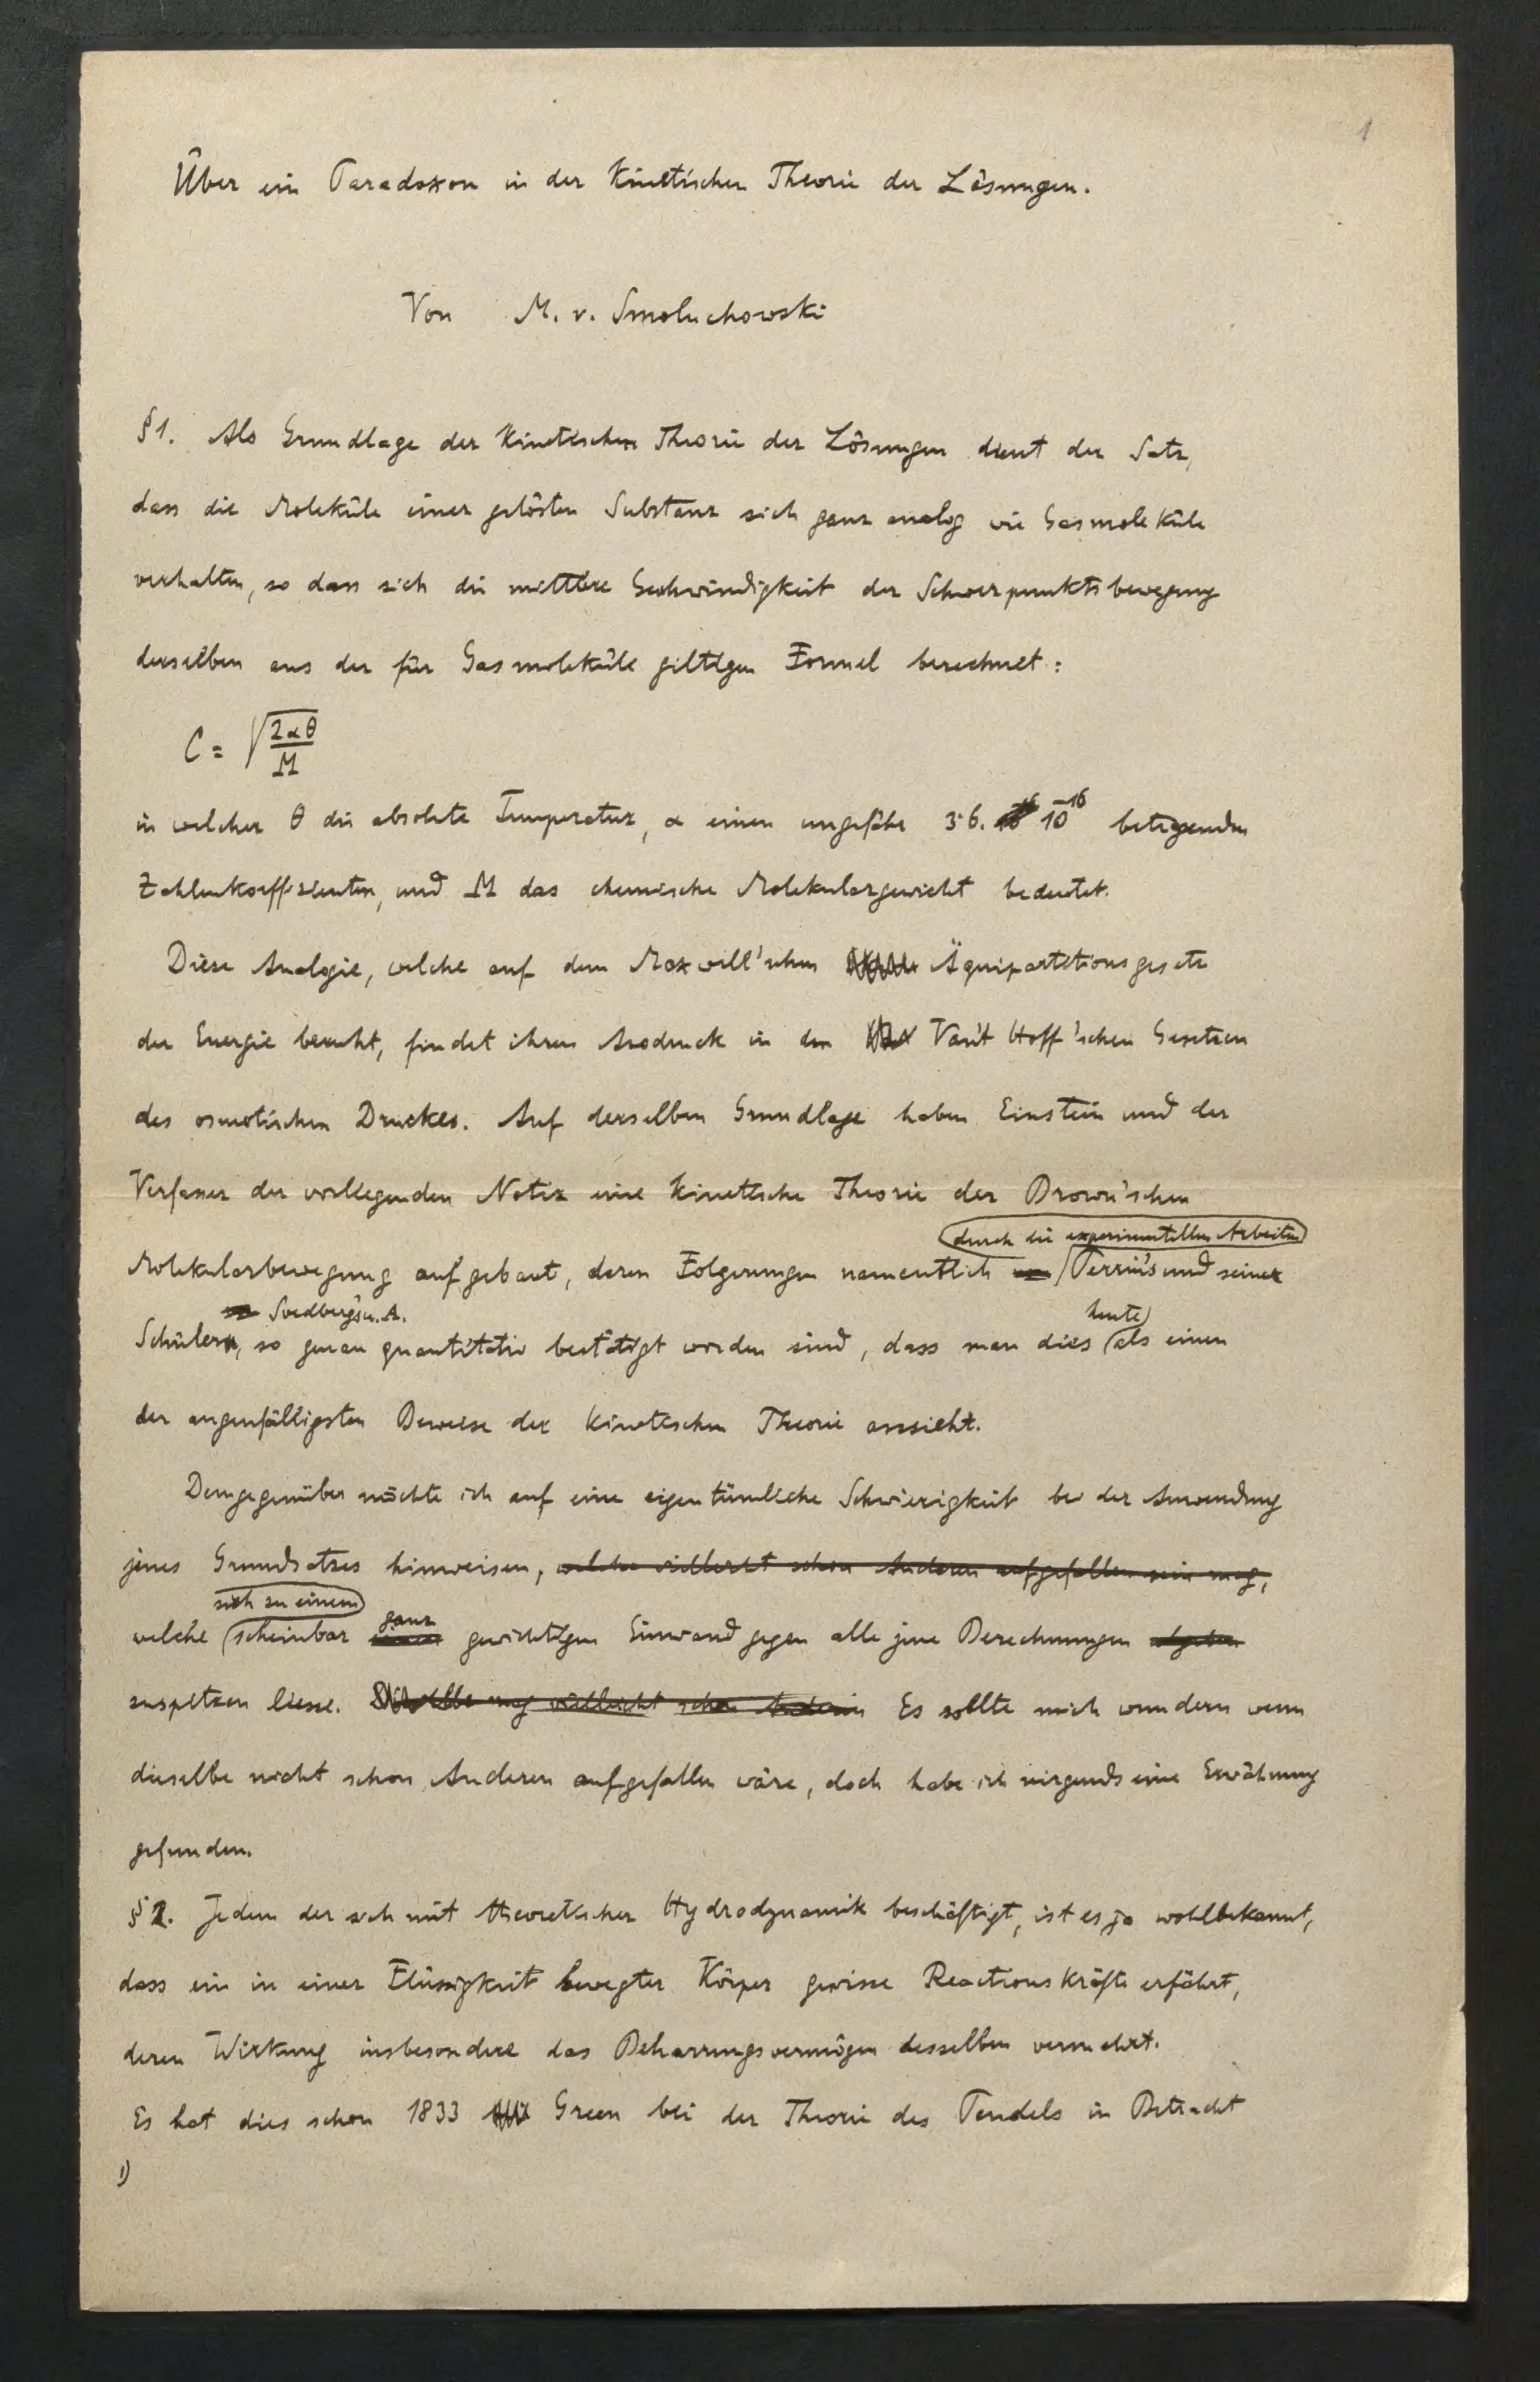 1
Über ein Paradoxon in der kinetischen Theorie der Lösungen.
Von M. v. Smoluchowski
§1. Als Grundlage der kinetischen Theorie der Lösungen dient der Satz,
dass die Moleküle einer gelösten Substanz sich ganz analog wie Gasmoleküle
verhalten, so dass sich die mittlere Geschwindigkeit der Schwerpunktsbewegung
derselben aus der für Gasmoleküle giltigen Formel berechnet:
C = √(2αθ/M)
in welcher θ die absolute Temperatur, α einen ungefähr 3·6. 10^-16 betragenden
Zahlenkoeffizienten, und M das chemische Molekulargewicht bedeutet.
Diese Analogie, welche auf dem Maxwell'schen Äquipartitionsgesetz
der Energie beruht, findet ihren Ausdruck in den Van't Hoff'schen Gesetzen
des osmotischen Druckes. Auf derselben Grundlage haben Einstein und der
Verfasser der vorliegenden Notiz eine kinetische Theorie der Brown'schen
durch die experimentellen Arbeiten
Molekularbewegung aufgebaut, deren Folgerungen namentlich Perrin's und seiner
Svedberg's u. A. heute
Schüler, so genau quantitativ bestätigt worden sind, dass man dies als einen
der augenfälligsten Beweise der kinetischen Theorie ansieht.
Demgegenüber möchte ich auf eine eigentümliche Schwierigkeit bei der Anwendung
jenes Grundsatzes hinweisen, welche vielleicht schon Anderen aufgefallen sein mag,
sich zu einem ganz
welche scheinbar gewichtigen Einwand gegen alle jene Berechnungen abgeben
zuspitzen liesse. Dieselbe mag vielleicht schon Anderen Es sollte mich wundern wenn
dieselbe nicht schon Anderen aufgefallen wäre, doch habe ich nirgends eine Erwähnung
gefunden.
§2. Jedem der sich mit theoretischer Hydrodynamik beschäftigt, ist es ja wohlbekannt,
dass ein in einer Flüssigkeit bewegter Körper gewisse Reactionskräfte erfährt,
deren Wirkung insbesondere das Beharrungsvermögen desselben vermehrt.
Es hat dies schon 1833 Green bei der Theorie des Pendels in Betracht
1)